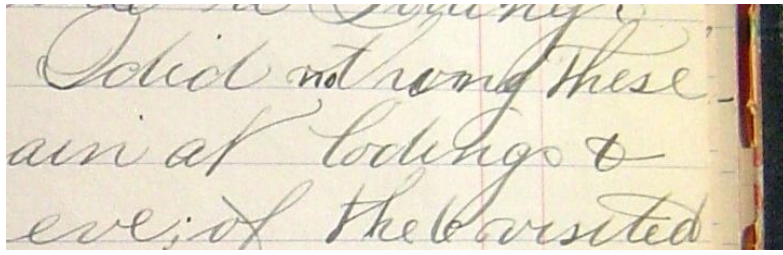 I did not wrong these
ain at lodings &
eve; of the 6 visited